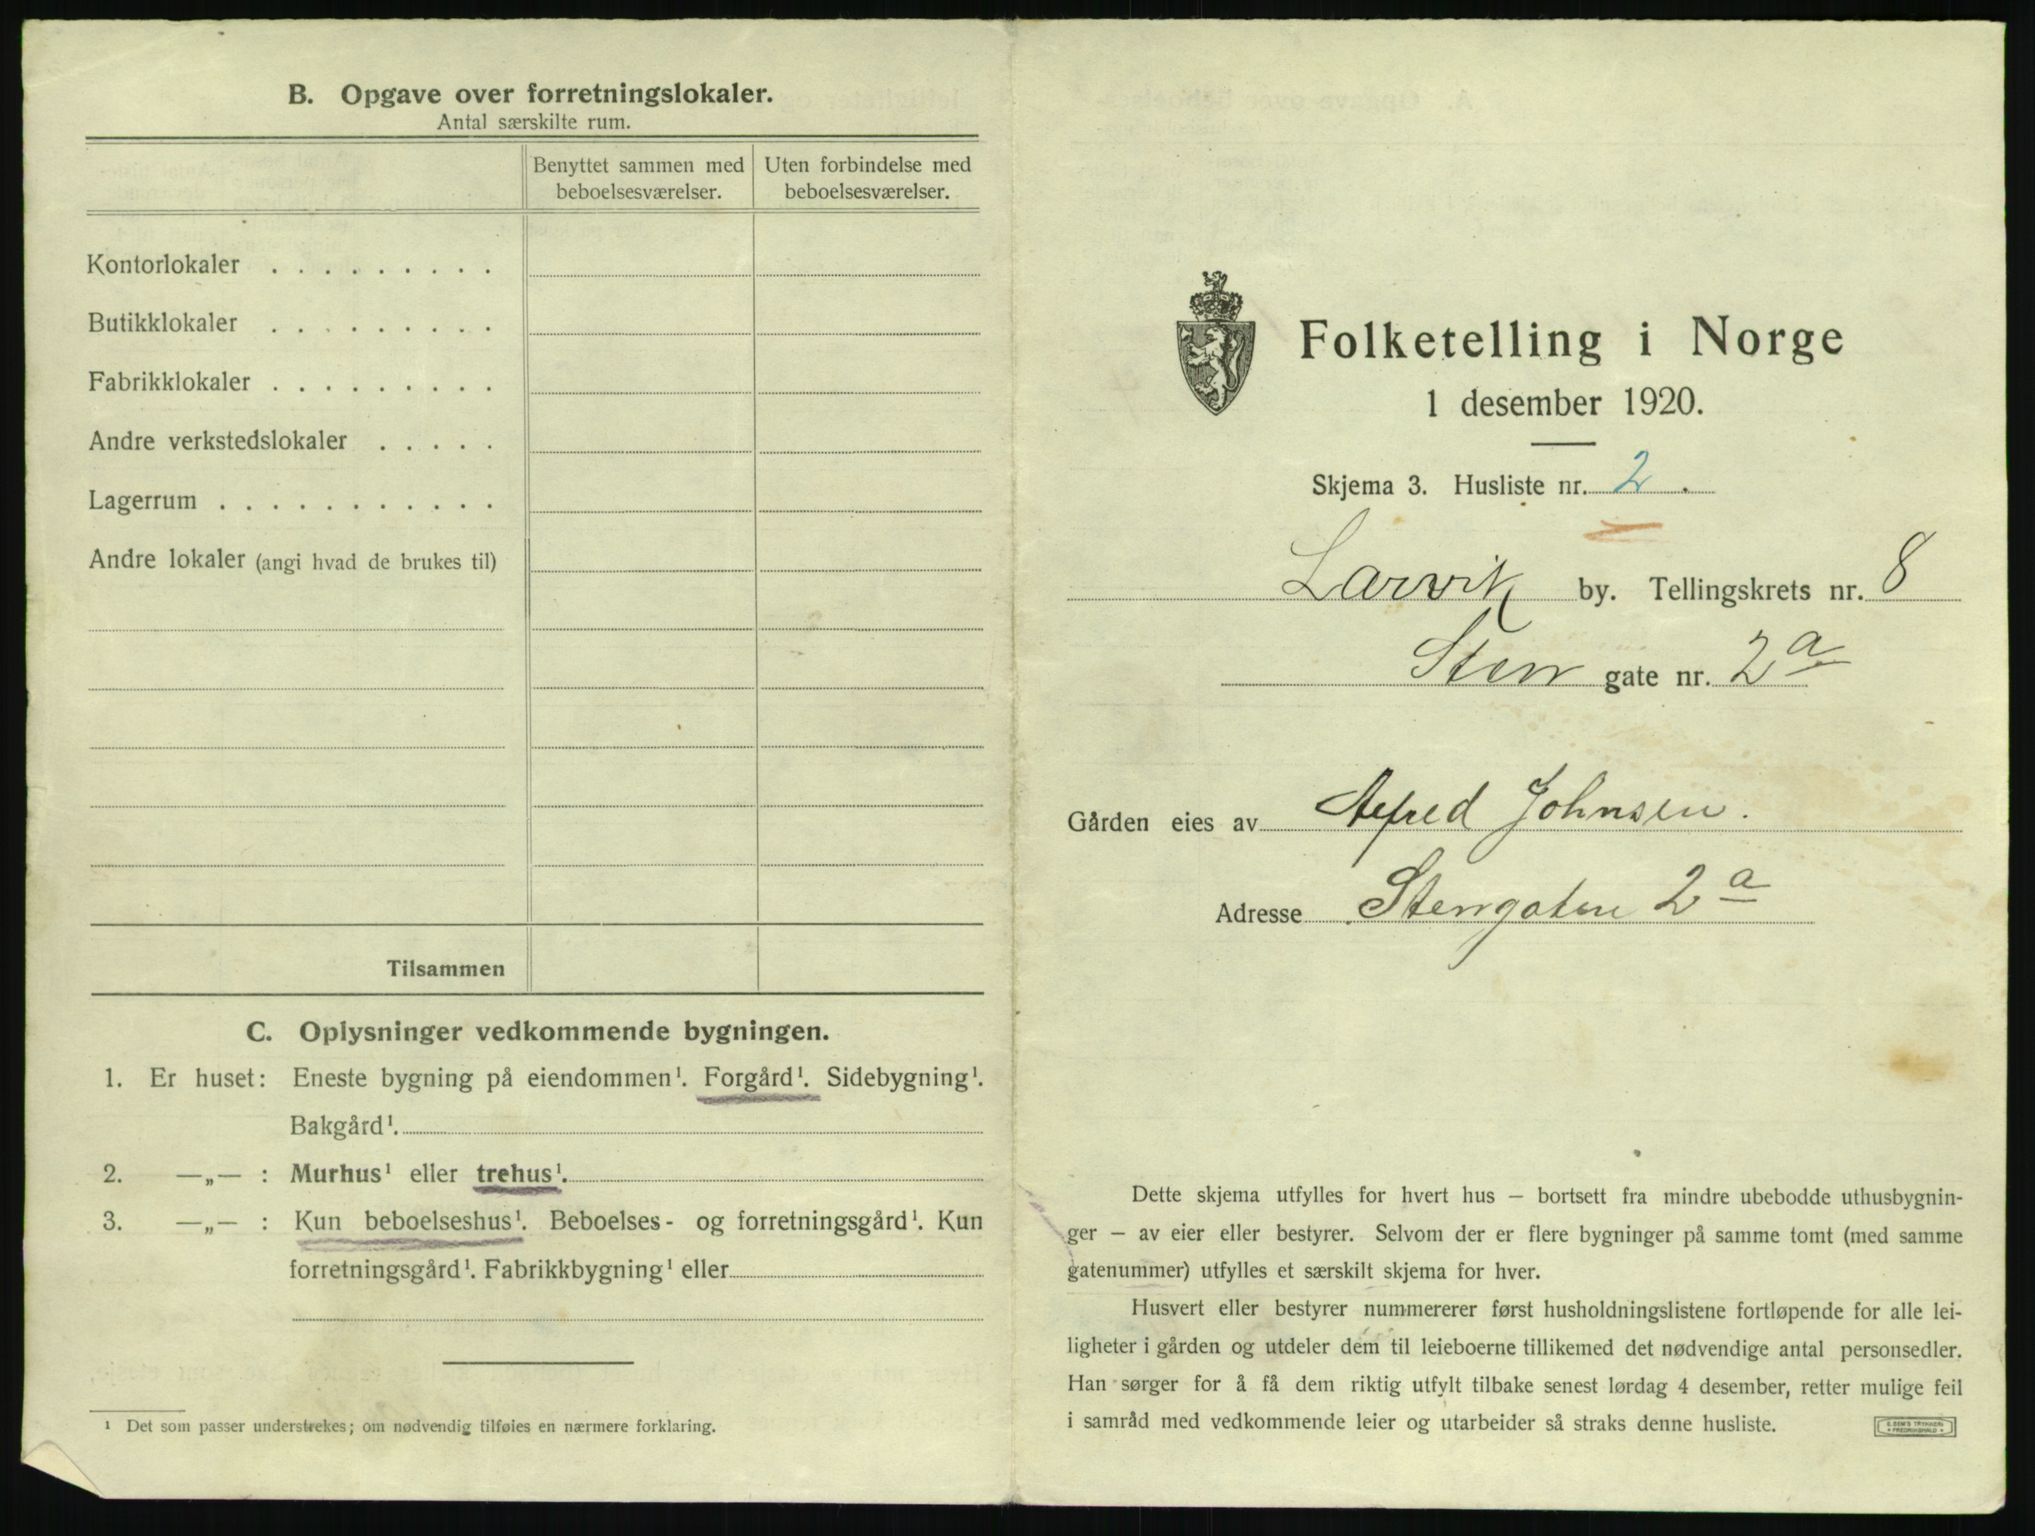 B. Opgave over forretningslokaler.
Antal særskilte rum.
Benyttet sammen med beboelsesværelser.
Uten forbindelse med beboelsesværelser.
Kontorlokaler . . . . . . . . .
Butikklokaler . . . . . . . . .
Fabrikklokaler . . . . . . . . .
Andre verkstedslokaler . . . . .
Lagerrum . . . . . . . . . . . .
Andre lokaler (angi hvad de brukes til)
Tilsammen
C. Oplysninger vedkommende bygningen.
1. Er huset: Eneste bygning på eiendommen¹. Forgård¹. Sidebygning¹.
Bakgård¹.
2. —„— : Murhus¹ eller trehus¹.
3. —„— : Kun beboelseshus¹. Beboelses- og forretningsgård¹. Kun
forretningsgård¹. Fabrikkbygning¹ eller
¹ Det som passer understrekes; om nødvendig tilføies en nærmere forklaring.
Folketelling i Norge
1 desember 1920.
Skjema 3. Husliste nr. 2.
Larvik by. Tellingskrets nr. 8
Sten gate nr. 2a
Gården eies av Alfred Johnsen.
Adresse Stengaten 2a
Dette skjema utfylles for hvert hus – bortsett fra mindre ubebodde uthusbygnin-
ger – av eier eller bestyrer. Selvom der er flere bygninger på samme tomt (med samme
gatenummer) utfylles et særskilt skjema for hver.
Husvert eller bestyrer nummererer først husholdningslistene fortløpende for alle lei-
ligheter i gården og utdeler dem til leieboerne tillikemed det nødvendige antal personsedler.
Han sørger for å få dem riktig utfylt tilbake senest lørdag 4 desember, retter mulige feil
i samråd med vedkommende leier og utarbeider så straks denne husliste.